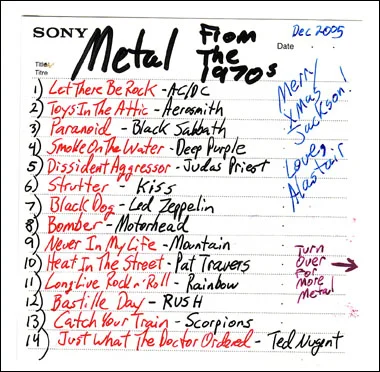 SONY
Metal From The 1970s
Date Dec 2005
Title
Titre
Merry Xmas Jackson!
Love, Alastair
1) Let There Be Rock - AC/DC
2) Toys In The Attic - Aerosmith
3) Paranoid - Black Sabbath
4) Smoke On The Water - Deep Purple
5) Dissident Aggressor - Judas Priest
6) Strutter - Kiss
7) Black Dog - Led Zeppelin
8) Bomber - Motorhead
9) Never In My Life - Mountain
10) Heat In The Street - Pat Travers
11) Long Live Rock n' Roll - Rainbow
12) Bastille Day - RUSH
13) Catch Your Train - Scorpions
14) Just What The Doctor Ordered - Ted Nugent
Turn
Over
For
More
Metal